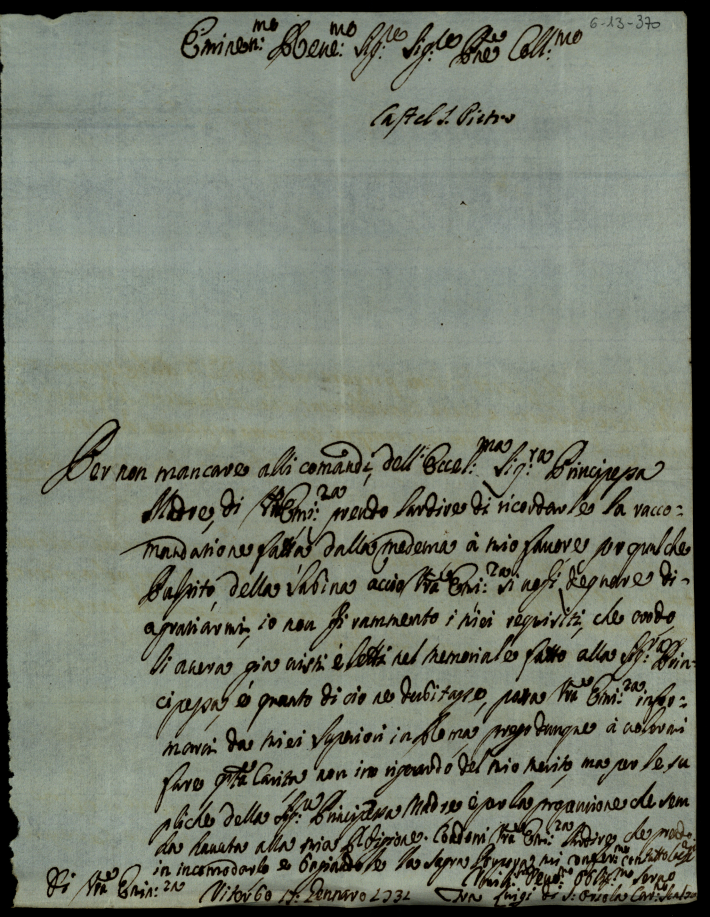 6-13-370
Eminen:mo Reve:mo Sig:re Sig:re Pne Coll:mo
Castel S. Pietro
Per non mancare alli comandi, dell' Eccel:ma Sig:ra Principessa
Madre, di Vra Emi:za prendo l'ardire di ricordarle la racco=
mandatione fatta dalla medema à mio favore per qualche
Pulpito della Sabina acciò Vra Emi:za si degnare di-
agratiarmi, io non li rammento i miei requisiti, che credo
li averà già visti è letti nel memoriale fatto alla Sig:ra Prin-
cipessa, e quanto di cio ne dubitasse, potrà Vra Emi:za infor=
marsi da miei Superiori in Roma prego dunque à volermi
fare qsta Carità non riguardo del mio merito, ma per le su
pliche della Sig:ra Principessa Madre è per la protettione che sem
alla mia Religione. Condoni Vra Emi:za l'ardire che prendo
in incomodarlo e la Sagra Porpora mi
di Vra Emin:za Viterbo Gennaro Umil: Deve:mo Obli:mo Servo
Fra Luigi di S.